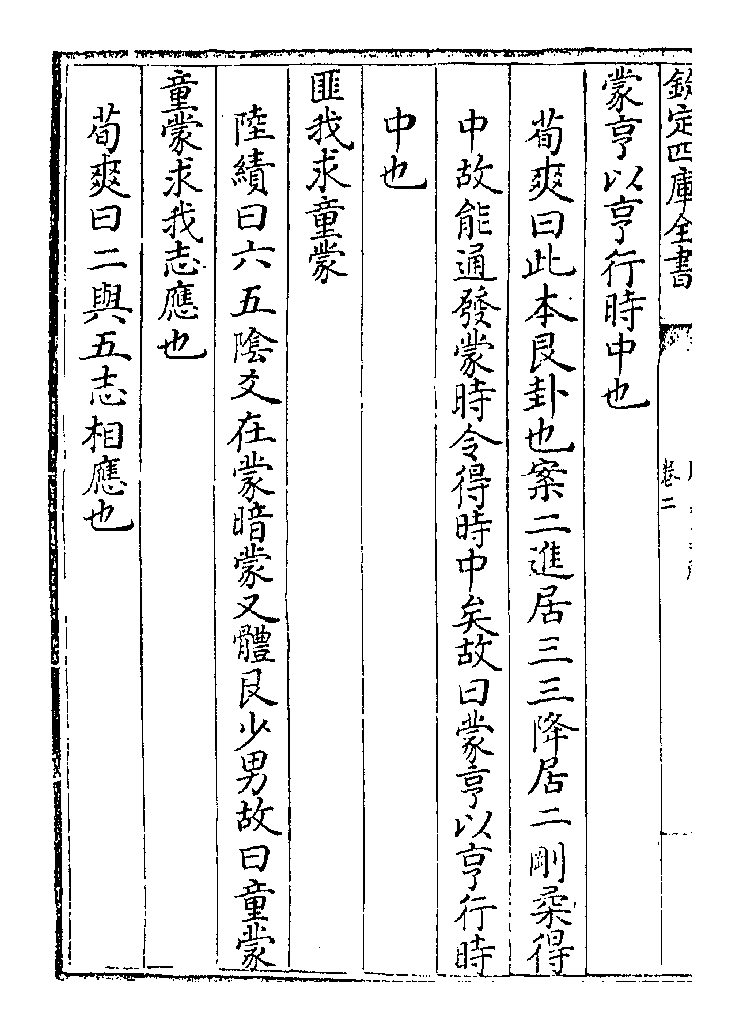 欽定四庫全書
卷二
蒙亨以亨行時中也
荀爽曰此本艮卦也案二進居三三降居二剛柔得
中故能通發蒙時令得時中矣故曰蒙亨以亨行時
中也
匪我求童蒙
陸績曰六五陰爻在蒙暗蒙又體艮少男故曰童蒙
童蒙求我志應也
荀爽曰二與五志相應也